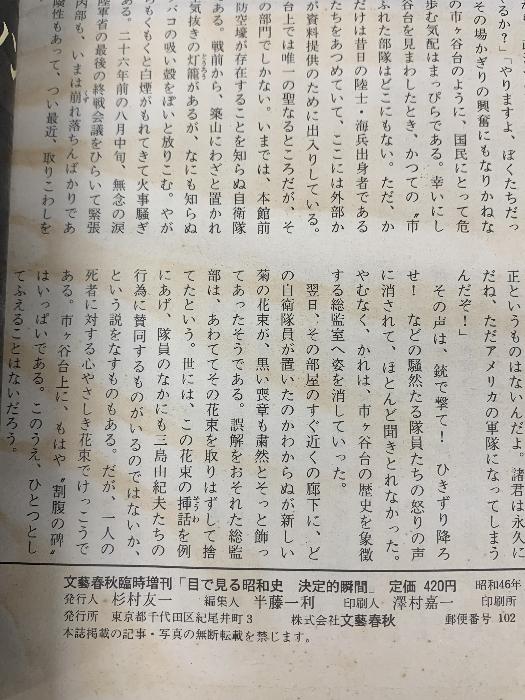 るか？」「やりますよ、ぼくたちだっ
その場かぎりの興奮にもなりかねな
の市ヶ谷台のように、国民にとって危
歩む気配はまっぴらである。幸いにし
谷台を見まわしたとき、かつての〝市
ふれた部隊はどこにもない。ただ、か
だけは昔日の陸士・海兵出身者である
たちをあつめていて、ここには外部か
が資料提供のために出入りしている。
台上では唯一の聖なるところだが、そ
の部門でしかない。いまでは、本館前
防空壕が存在することを知らぬ自衛隊
ある。戦前から、築山にわざと置かれ
気抜きの灯籠があるが、なにも知らぬ
バコの吸い殻をぽいと放りこむ。やが
らもくもくと白煙がもれてきて火事騒ぎ
ある。二十六年前の八月中旬、無念の涙
陸軍省の最後の終戦会議をひらいて緊張
内部も、いまは崩れ落ちんばかりであ
険性もあって、つい最近、取りこわしを
正というものはないんだよ。諸君は永久に
だね、ただアメリカの軍隊になってしまう
んだぞ！
その声は、銃で撃て！　ひきずり降ろ
せ！　などの騒然たる隊員たちの怒りの声
に消されて、ほとんど聞きとれなかった。
やむなく、かれは、市ヶ谷台の歴史を象徴
する総監室へ姿を消していった。
翌日、その部屋のすぐ近くの廊下に、ど
の自衛隊員が置いたのかわからぬが新しい
菊の花束が、黒い喪章も粛然とそっと飾っ
てあったそうである。誤解をおそれた総監
部は、あわててその花束を取りはずして捨
てたという。世には、この花束の挿話を例
にあげ、隊員のなかにも三島由紀夫たちの
行為に賛同するものがいるのではないか、
という説をなすものもある。だが、一人の
死者に対する心やさしき花束でけっこうで
ある。市ヶ谷台上に、もはや〝割腹の碑〟
はいっぱいである。このうえ、ひとつとし
てふえることはないだろう。
文藝春秋臨時増刊「目で見る昭和史　決定的瞬間」　定価 420円　昭和46年
発行人　杉村友一　編集人　半藤一利　印刷人　澤村嘉一　印刷所
発行所　東京都千代田区紀尾井町3　株式会社文藝春秋　郵便番号 102
本誌掲載の記事・写真の無断転載を禁じます。